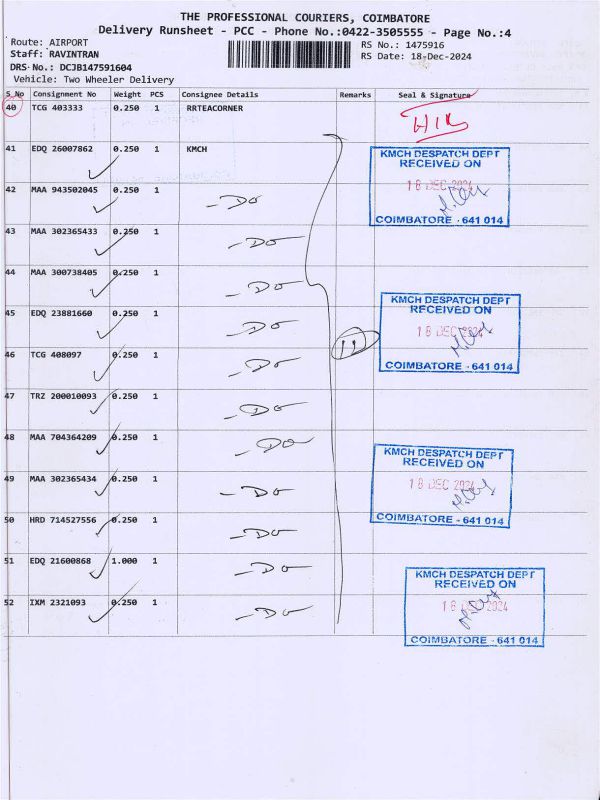 THE PROFESSIONAL COURIERS, COIMBATORE
Delivery Runsheet - PCC - Phone No.:0422-3505555 - Page No.:4
Route: AIRPORT
RS No.: 1475916
Staff: RAVINTRAN
RS Date: 18-Dec-2024
DRS No.: DCJB147591604
Vehicle: Two Wheeler Delivery
S_No Consignment No Weight PCS Consignee Details Remarks Seal & Signature
40 TCG 403333 0.250 1 RRTEACORNER
41 EDQ 26007862 0.250 1 KMCH
KMCH DESPATCH DEPT
RECEIVED ON
18 DEC 2024
COIMBATORE - 641 014
42 MAA 943502045 0.250 1 -Do
43 MAA 302365433 0.250 1 -Do
44 MAA 300738405 0.250 1 -Do
KMCH DESPATCH DEPT
RECEIVED ON
18 DEC 2024
COIMBATORE - 641 014
45 EDQ 23881660 0.250 1 -Do
46 TCG 408097 0.250 1 -Do
47 TRZ 200010093 0.250 1 -Do
48 MAA 704364209 0.250 1 -Do
KMCH DESPATCH DEPT
RECEIVED ON
18 DEC 2024
COIMBATORE - 641 014
49 MAA 302365434 0.250 1 -Do
50 HRD 714527556 0.250 1 -Do
51 EDQ 21600868 1.000 1 -Do
KMCH DESPATCH DEPT
RECEIVED ON
18 DEC 2024
COIMBATORE - 641 014
52 IXM 2321093 0.250 1 -Do